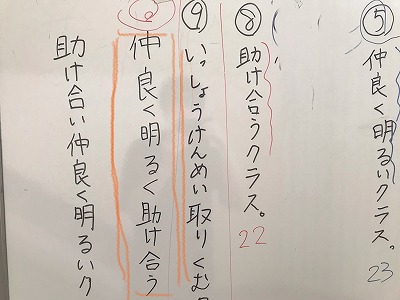 ⑤仲良く明るいクラス。23
⑧助け合うクラス。22
⑨いっしょうけんめい取りくむ
仲良く明るく助け合う
助け合い仲良く明るいク